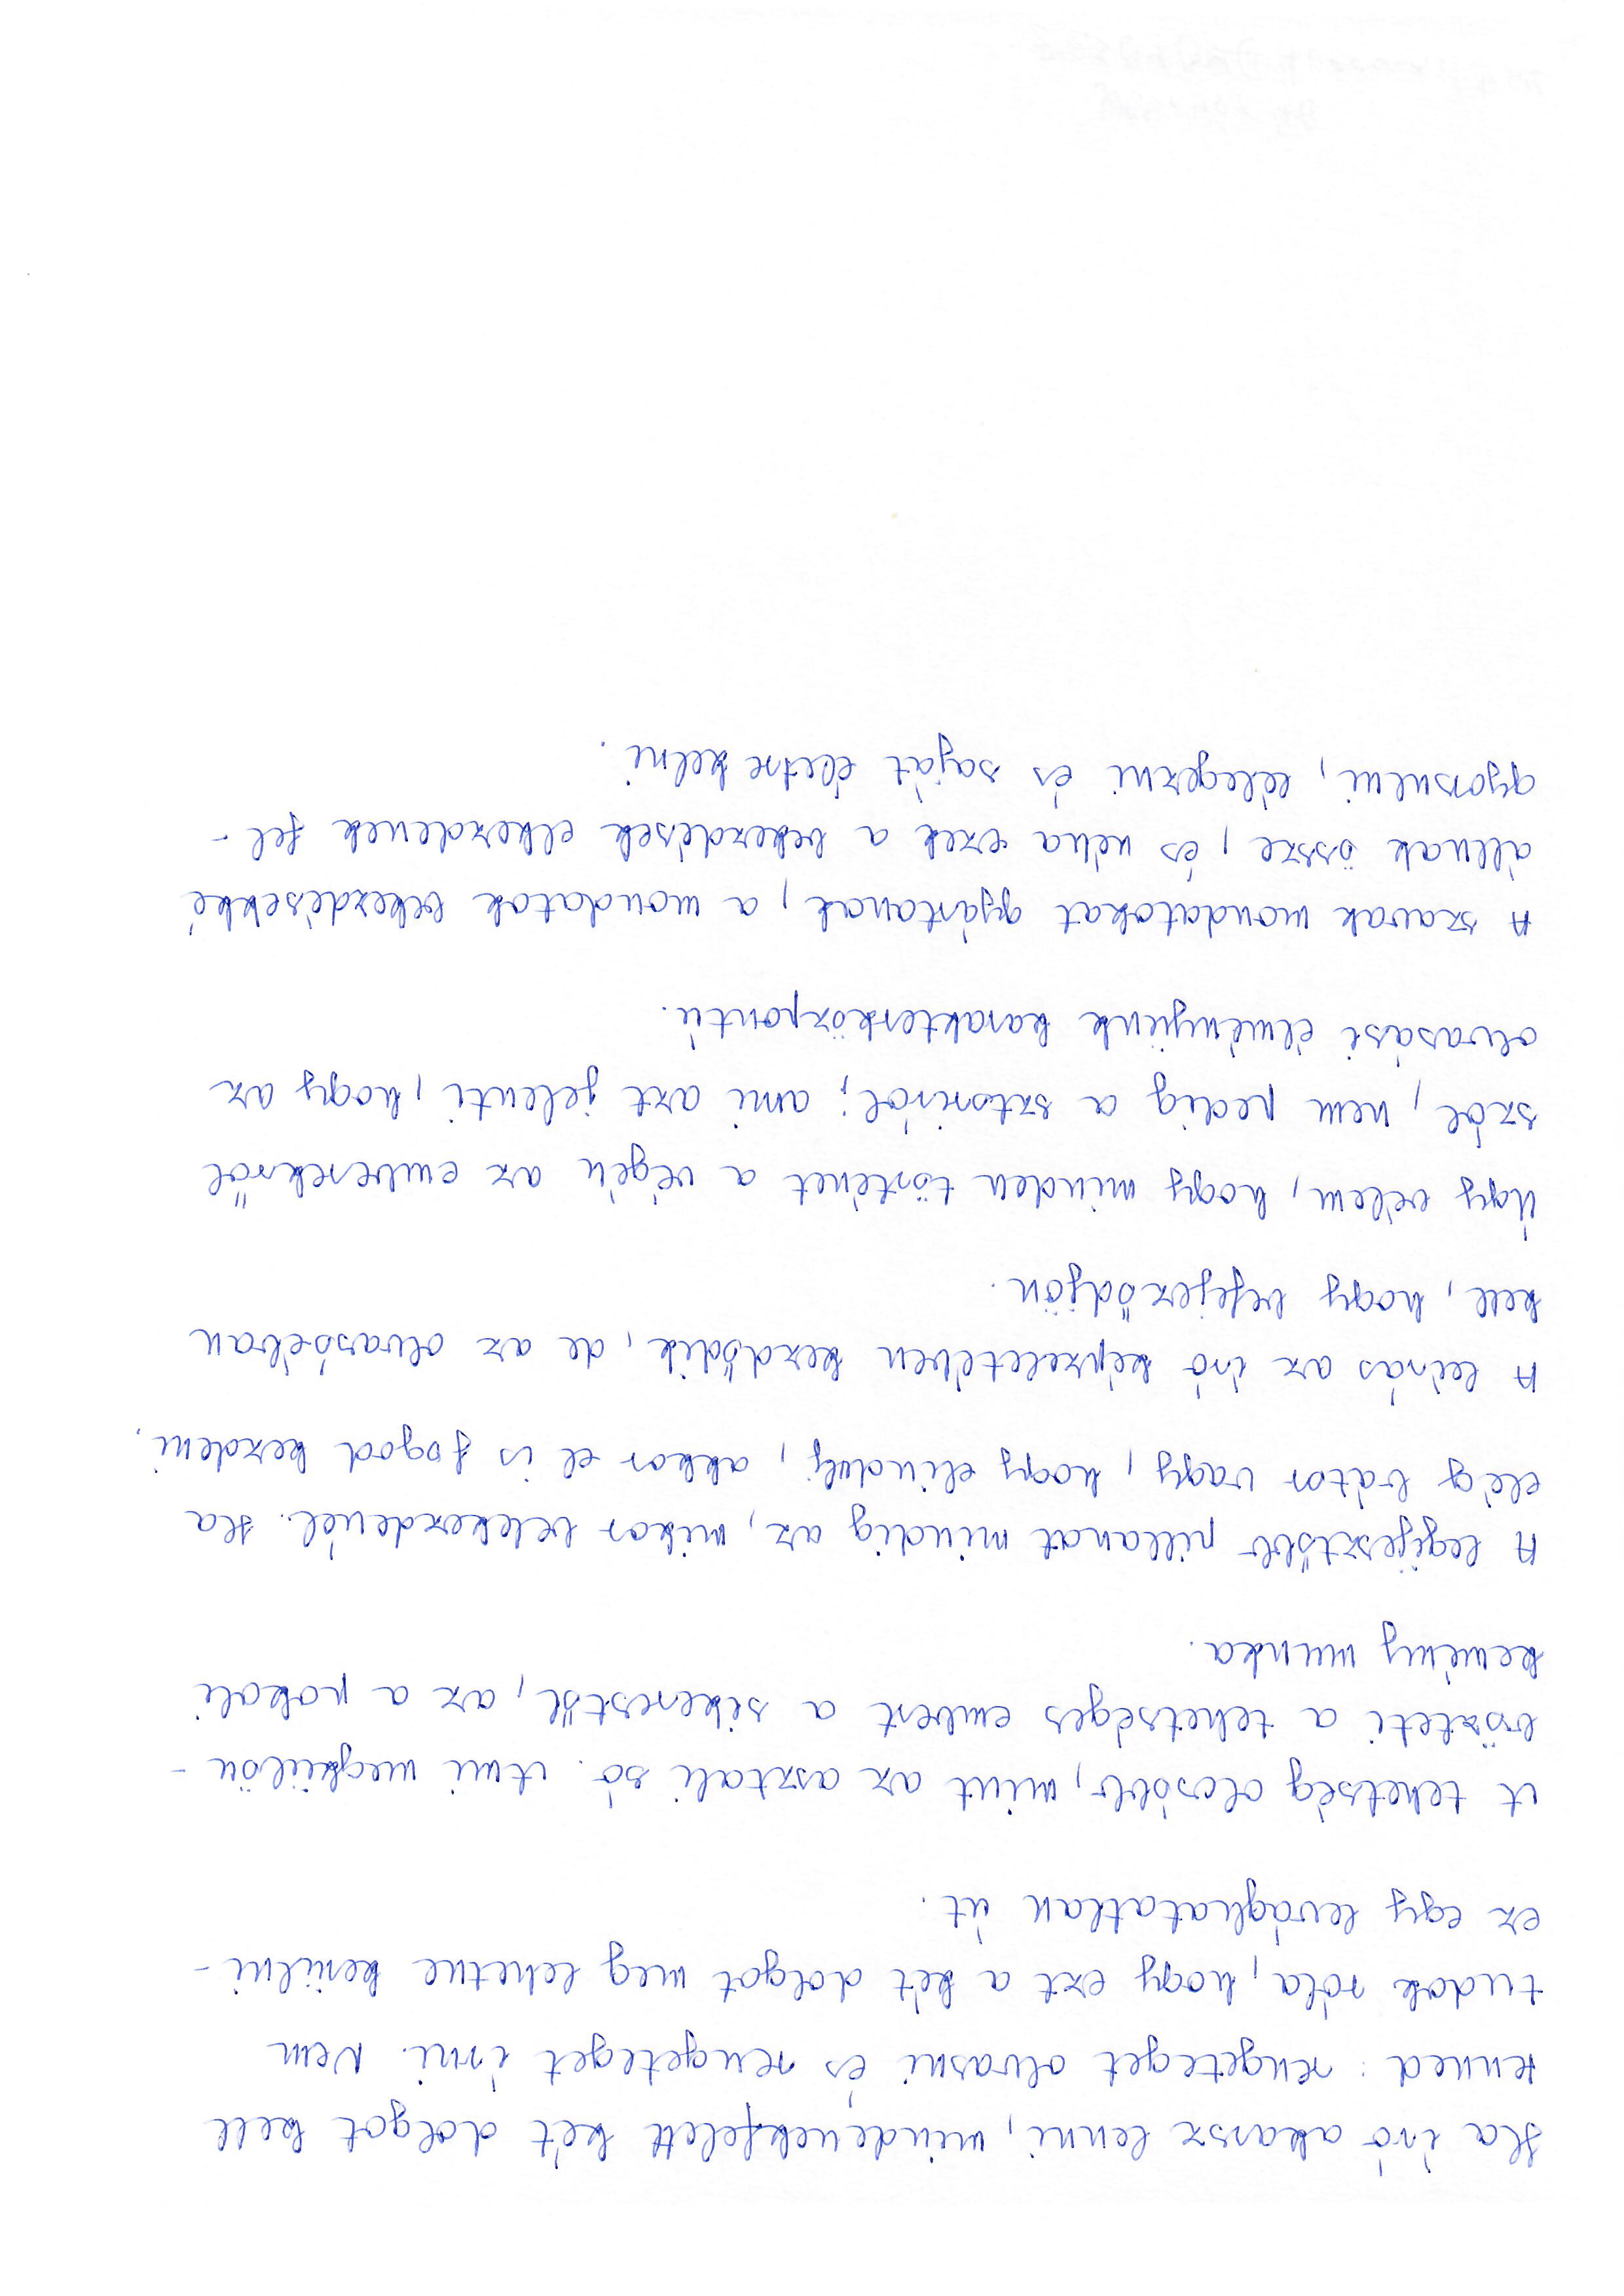 Ha író akarsz lenni, mindenekfelett két dolgot kell
tenned: rengeteget olvasni és rengeteget írni. Nem
tudok róla, hogy ezt a két dolgot meg lehetne kerülni -
ez egy levághatatlan út.
A tehetség olcsóbb, mint az asztali só. Ami megkülön-
bözteti a tehetséges embert a sikerestől, az a pokoli
kemény munka.
A legijesztőbb pillanat mindig az, mikor belekezdenél. Ha
elég bátor vagy, hogy elindulj, akkor el is fogod kezdeni.
A leírás az író képzeletében kezdődik, de az olvasóéban
kell, hogy befejeződjön.
Úgy vélem, hogy minden történet a végén az emberekről
szól, nem pedig a sztoriról; ami azt jelenti, hogy az
olvasási élményünk karakterközpontú.
A szavak mondatokat gyártanak, a mondatok bekezdésekké
állnak össze, és néha ezek a bekezdések elkezdenek fel-
gyorsulni, lélegezni és saját életre kelni.